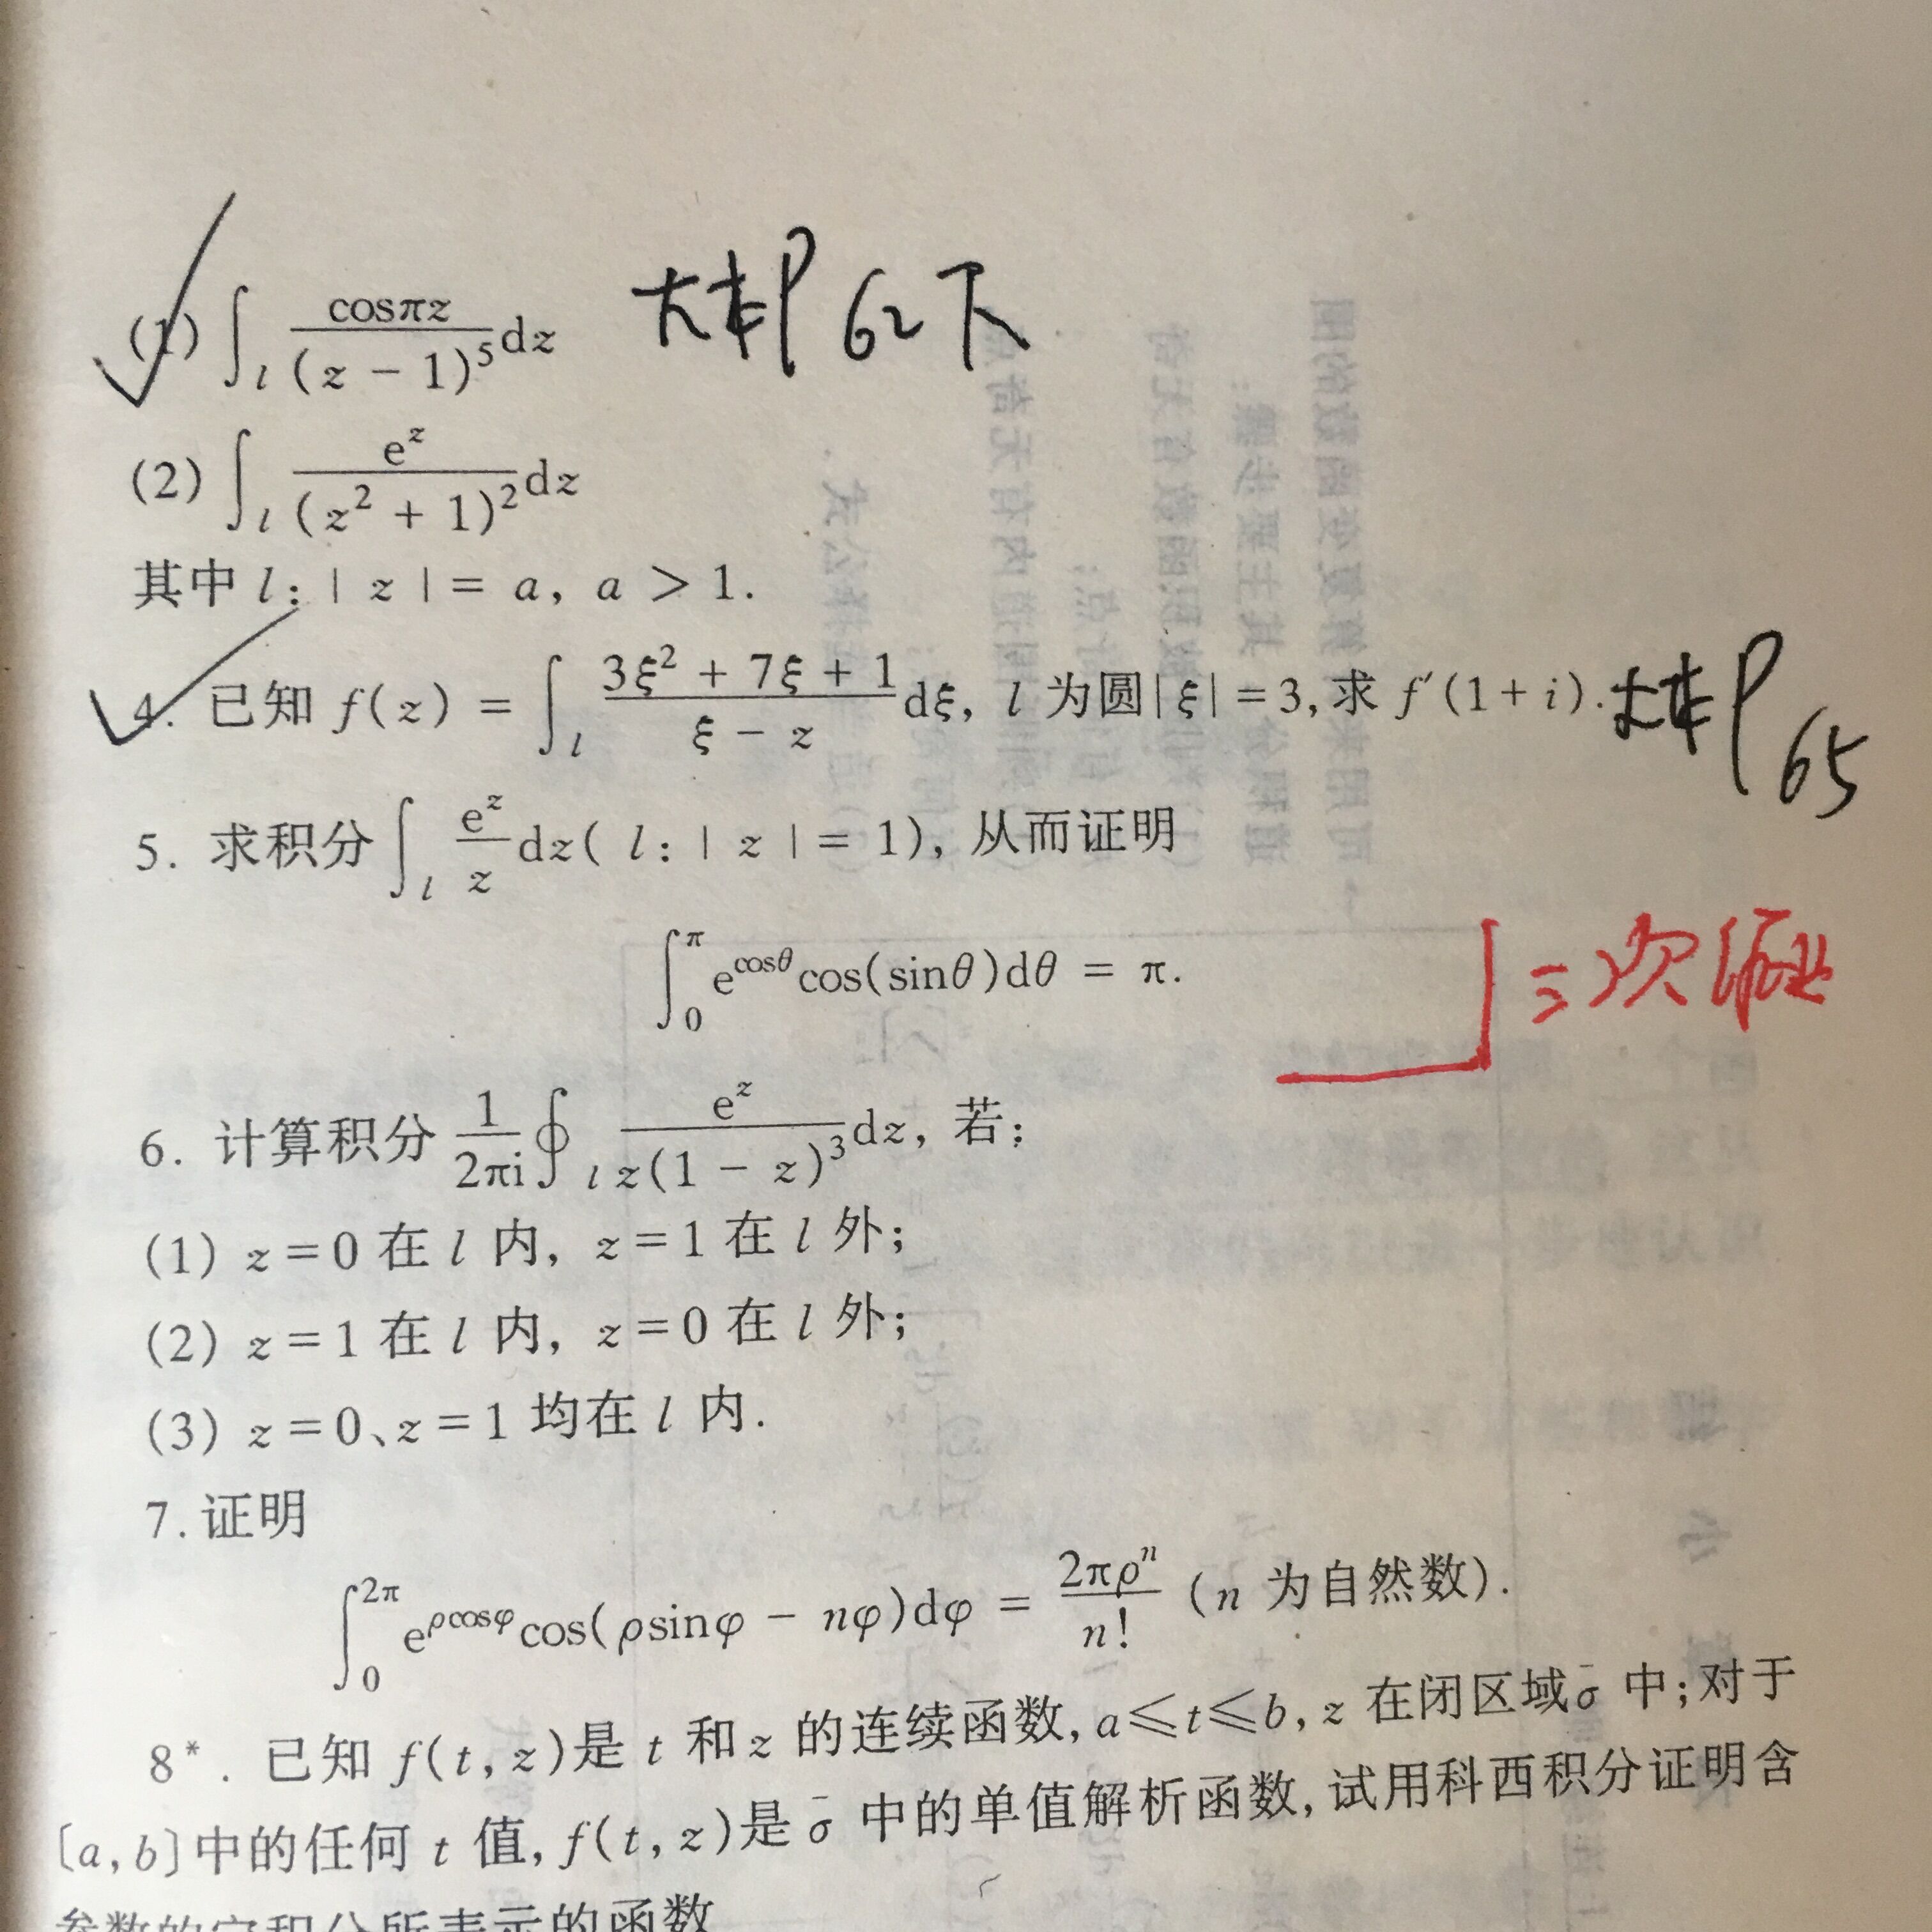 (1) ∫_l cosπz/(z − 1)^5 dz 大本P62下
(2) ∫_l e^z/(z^2 + 1)^2 dz
其中 l: | z | = a, a > 1.
4. 已知 f(z) = ∫_l (3ξ^2 + 7ξ + 1)/(ξ − z) dξ, l 为圆|ξ| = 3,求 f′(1 + i). 大本P65
5. 求积分∫_l e^z/z dz( l: | z | = 1), 从而证明
∫_0^π e^{cosθ}cos(sinθ)dθ = π.
三次
6. 计算积分 1/(2πi) ∮_l e^z/(z(1 − z)^3) dz, 若:
(1) z = 0 在 l 内, z = 1 在 l 外;
(2) z = 1 在 l 内, z = 0 在 l 外;
(3) z = 0、z = 1 均在 l 内.
7. 证明
∫_0^{2π} e^{ρcosφ}cos(ρsinφ − nφ)dφ = 2πρ^n/n! (n 为自然数).
8*. 已知 f(t, z)是 t 和 z 的连续函数, a≤t≤b, z 在闭区域σ̄ 中;对于
〔a, b〕中的任何 t 值, f(t, z)是 σ̄ 中的单值解析函数,试用科西积分证明含
参数的定积分所表示的函数